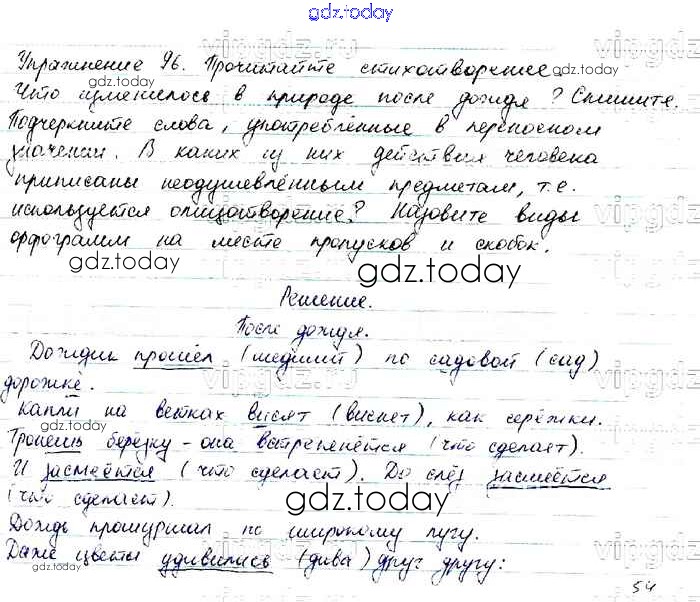 gdz.today
Упражнение 96. Прочитайте стихотворение.
Что изменилось в природе после дождя? Спишите.
Подчеркните слова, употреблённые в переносном
значении. В каких из них действия человека
приписаны неодушевлённым предметам, т.е.
используется олицетворение? Назовите виды
орфограмм на месте пропусков и скобок.
gdz.today
gdz.today
Решение.
После дождя.
Дождик прошёл (шедший) по садовой (сад)
дорожке.
Капли на ветках висят (виснет), как серёжки.
Тронешь берёзку - она встрепенётся (что сделает).
И засмеётся (что сделает). До слёз засмеётся
(что сделает).
gdz.today
Дождь прошуршал по широкому лугу.
Даже цветы удивились (дива) друг другу:
gdz.today
54